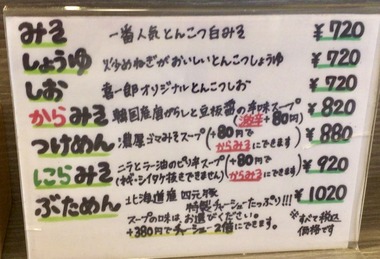 みそ 一番人気とんこつ白みそ ¥720
しょうゆ 炒めねぎがおいしいとんこつしょうゆ ¥720
しお 喜一郎オリジナルとんこつしお ¥720
からみそ 韓国産唐がらしと豆板醤の辛味スープ ¥820
(激辛+80円)
つけめん 濃厚ゴマみそスープ(+80円でからみそにできます) ¥880
にらみそ ニラとラー油のピリ辛スープ(+80円でからみそにできます) ¥920
(ネギ・シイタケ抜きできません)
ぶためん 北海道産 四元豚 ¥1020
特製チャーシューたっぷり!!!
スープの味はお選びください。
+380円でチャーシュー2倍にできます。
※すべて税込価格です